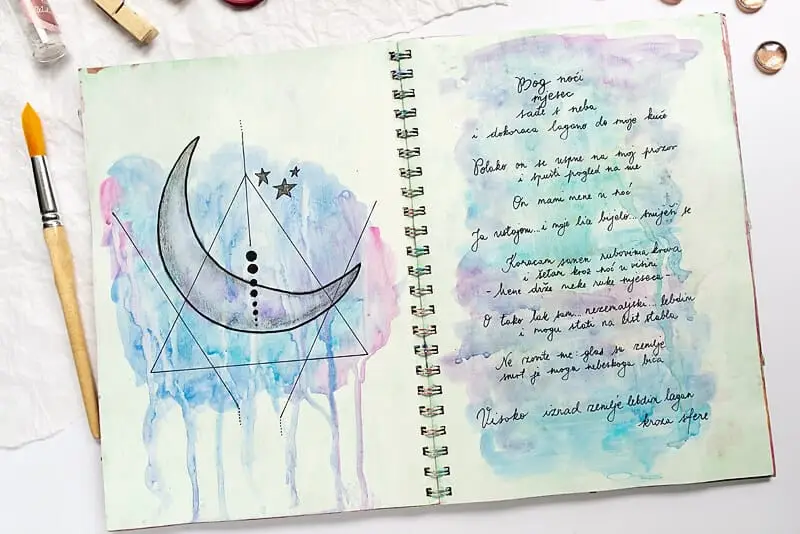 Bog noći
mjesec
sađe s neba
i dokoraca lagano do moje kuće
Polako on se uspne na moj prozor
i spusti pogled na me
On mami mene u noć
Ja ustajem... i moje lice bijelo... smiješi se
Koracam sanen rubovima krova
i šetam kroz noć u visini
- Mene drže meke ruke mjeseca -
O tako lak sam... nezemaljski... lebdim
i mogu stati na list stabla
Ne zovite me glas sa zemlje
smrt je moga nebeskoga bića
Visoko iznad zemlje lebdim lagan
kroza sfere